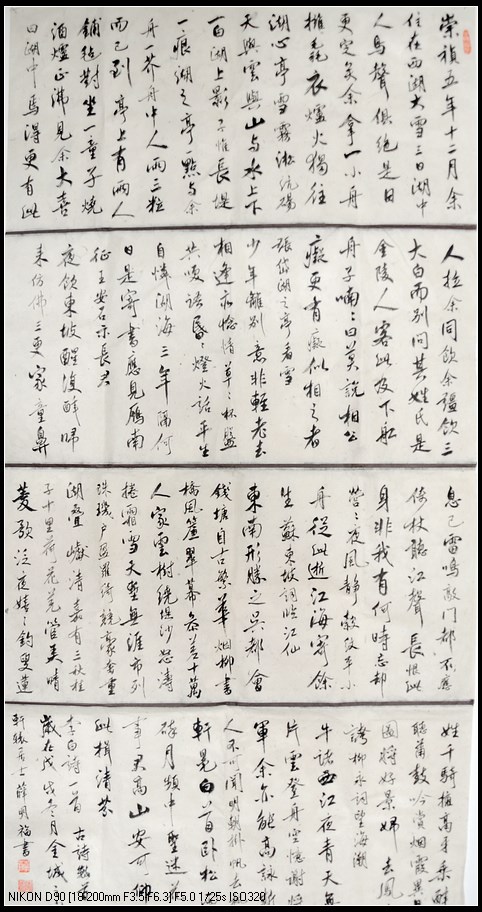 崇禎五年十二月余
住在西湖大雪三日湖中
人鳥聲俱絶是日
更定矣余拿一小舟
擁毳衣爐火獨往
湖心亭雪霧淞沆碭
天與雲與山与水上下
一白湖上影子惟長堤
一痕湖之亭一點与余
舟一芥舟中人两三粒
而已到亭上有两人
鋪氈對坐一童子燒
酒爐正沸見余大喜
曰湖中焉得更有此
人拉余同飲余强飲三
大白而别问其姓氏是
金陵人客此及下船
舟子喃喃曰莫説相公
癡更有癡似相公者
張岱湖之亭看雪
少年離别意非輕老去
相逢亦愴情草草杯盤
共笑語昏昏燈火話平生
自憐湖海三年隔何
日是寄書應見雁南
征王安石示長君
夜飲東坡醒復醉歸
来仿佛三更家童鼻
息已雷鳴敲门都不應
倚杖聽江聲長恨此
身非我有何時忘却
營營夜風静縠紋平小
舟從此逝江海寄餘
生蘇東坡詞臨江仙
東南形勝三吴都會
錢塘自古繁華烟柳畫
橋風簾翠幕参差十萬
人家雲樹繞堤沙怒濤
捲霜雪天塹無涯市列
珠璣户盈羅綺競豪奢重
湖叠巘清嘉有三秋桂
子十里荷花羌管弄晴
菱歌泛夜嬉嬉釣叟蓮
娃千騎擁高牙乘醉
聽簫鼓吟賞烟霞異日
圖將好景歸去鳳
誇柳永詞望海潮
牛渚西江夜青天無
片雲登舟空憶謝將
軍余亦能高詠斯
人不可聞明朝掛帆去
軒冕白首卧松
醉月頻中聖迷花
事君高山安可仰
此揖清芬
李白詩二首 古詩數首
歲在戊戌冬月金城
士薛明福書
NIKON D90 [18-200mm F3.5-F6.3] F5.0 1/25s ISO320